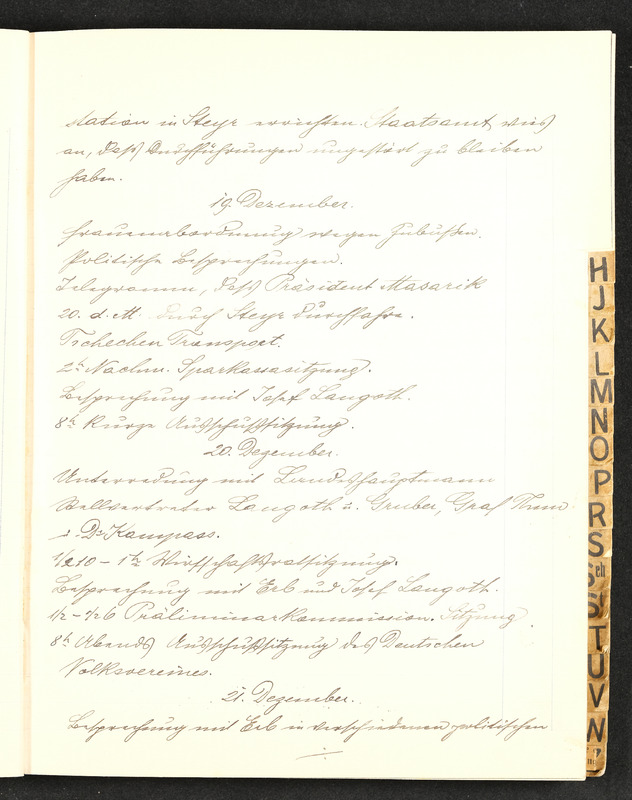 station in Steyr errichten. Staatsamt wies
an, daß Durchführungen ungestört zu bleiben
haben.
19. Dezember.
Frauenabordnung wegen Zubußen.
Politische Besprechungen.
Telegramm, daß Präsident Masarik
20. d. M. durch Steyr durchfahre.
Tschechen Transport.
2h Nachm. Sparkassasitzung.
Besprechung mit Josef Langoth.
8h kurze Ausschußsitzung.
20. Dezember.
Unterredung mit Landeshauptmann
Stellvertreter Langoth u. Gruber, Graf
u. Dr Kampass.
1/2 10 - 1h Wirtschaftsratsitzung.
Besprechung mit Erb und Josef Langoth.
1/2 - 1/2 6 Präliminarkommission. Sitzung
8h Abends Ausschußsitzung des Deutschen
Volksvereines.
21. Dezember.
Besprechung mit Erb in verschiedenen politischen
H
J
K
L
M
N
O
P
R
S
Sch
St
T
U
V
W